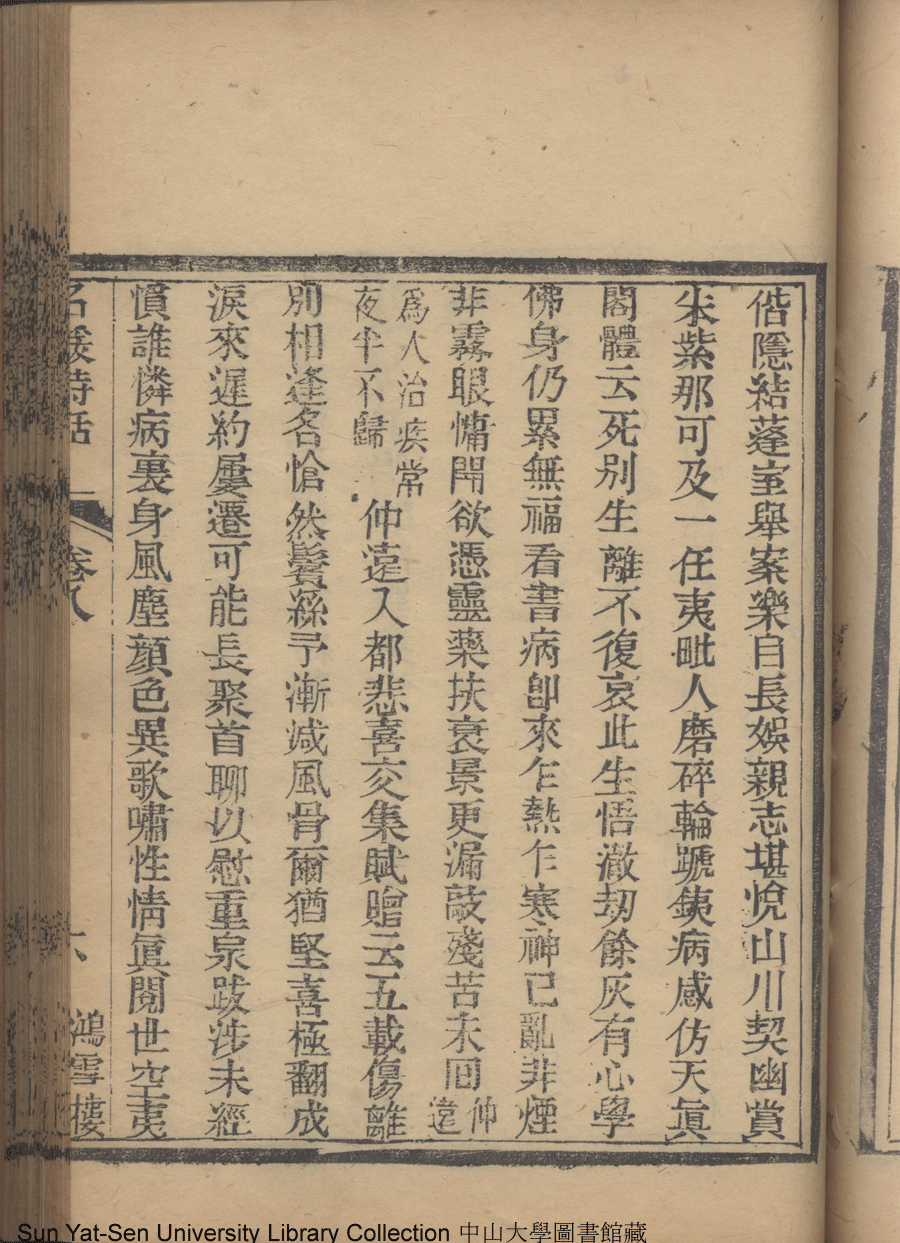 偕隱結蓬室舉案樂自長娛親志堪悅山川契幽賞
朱紫那可及一任夷毗人磨碎輪蹏鉄病感仿天眞
閣體云死別生離不復哀此生悟澈劫餘灰有心學
佛身仍累無福看書病卽來乍熱乍寒神已亂非煙
非霧眼慵開欲憑靈藥扶衰景更漏敲殘苦未回仲遠
爲人治疾常
夜半不歸
仲遠入都悲喜交集賦贈云五載傷離
別相逢各愴然鬢絲予漸減風骨爾猶堅喜極翻成
淚來遲約屢遷可能長聚首聊以慰重泉跋涉未經
慣誰憐病裏身風塵顔色異歌嘯性情眞閱世空夷
名媛詩話 卷八 六 鴻雪樓
Sun Yat-Sen University Library Collection 中山大學圖書館藏